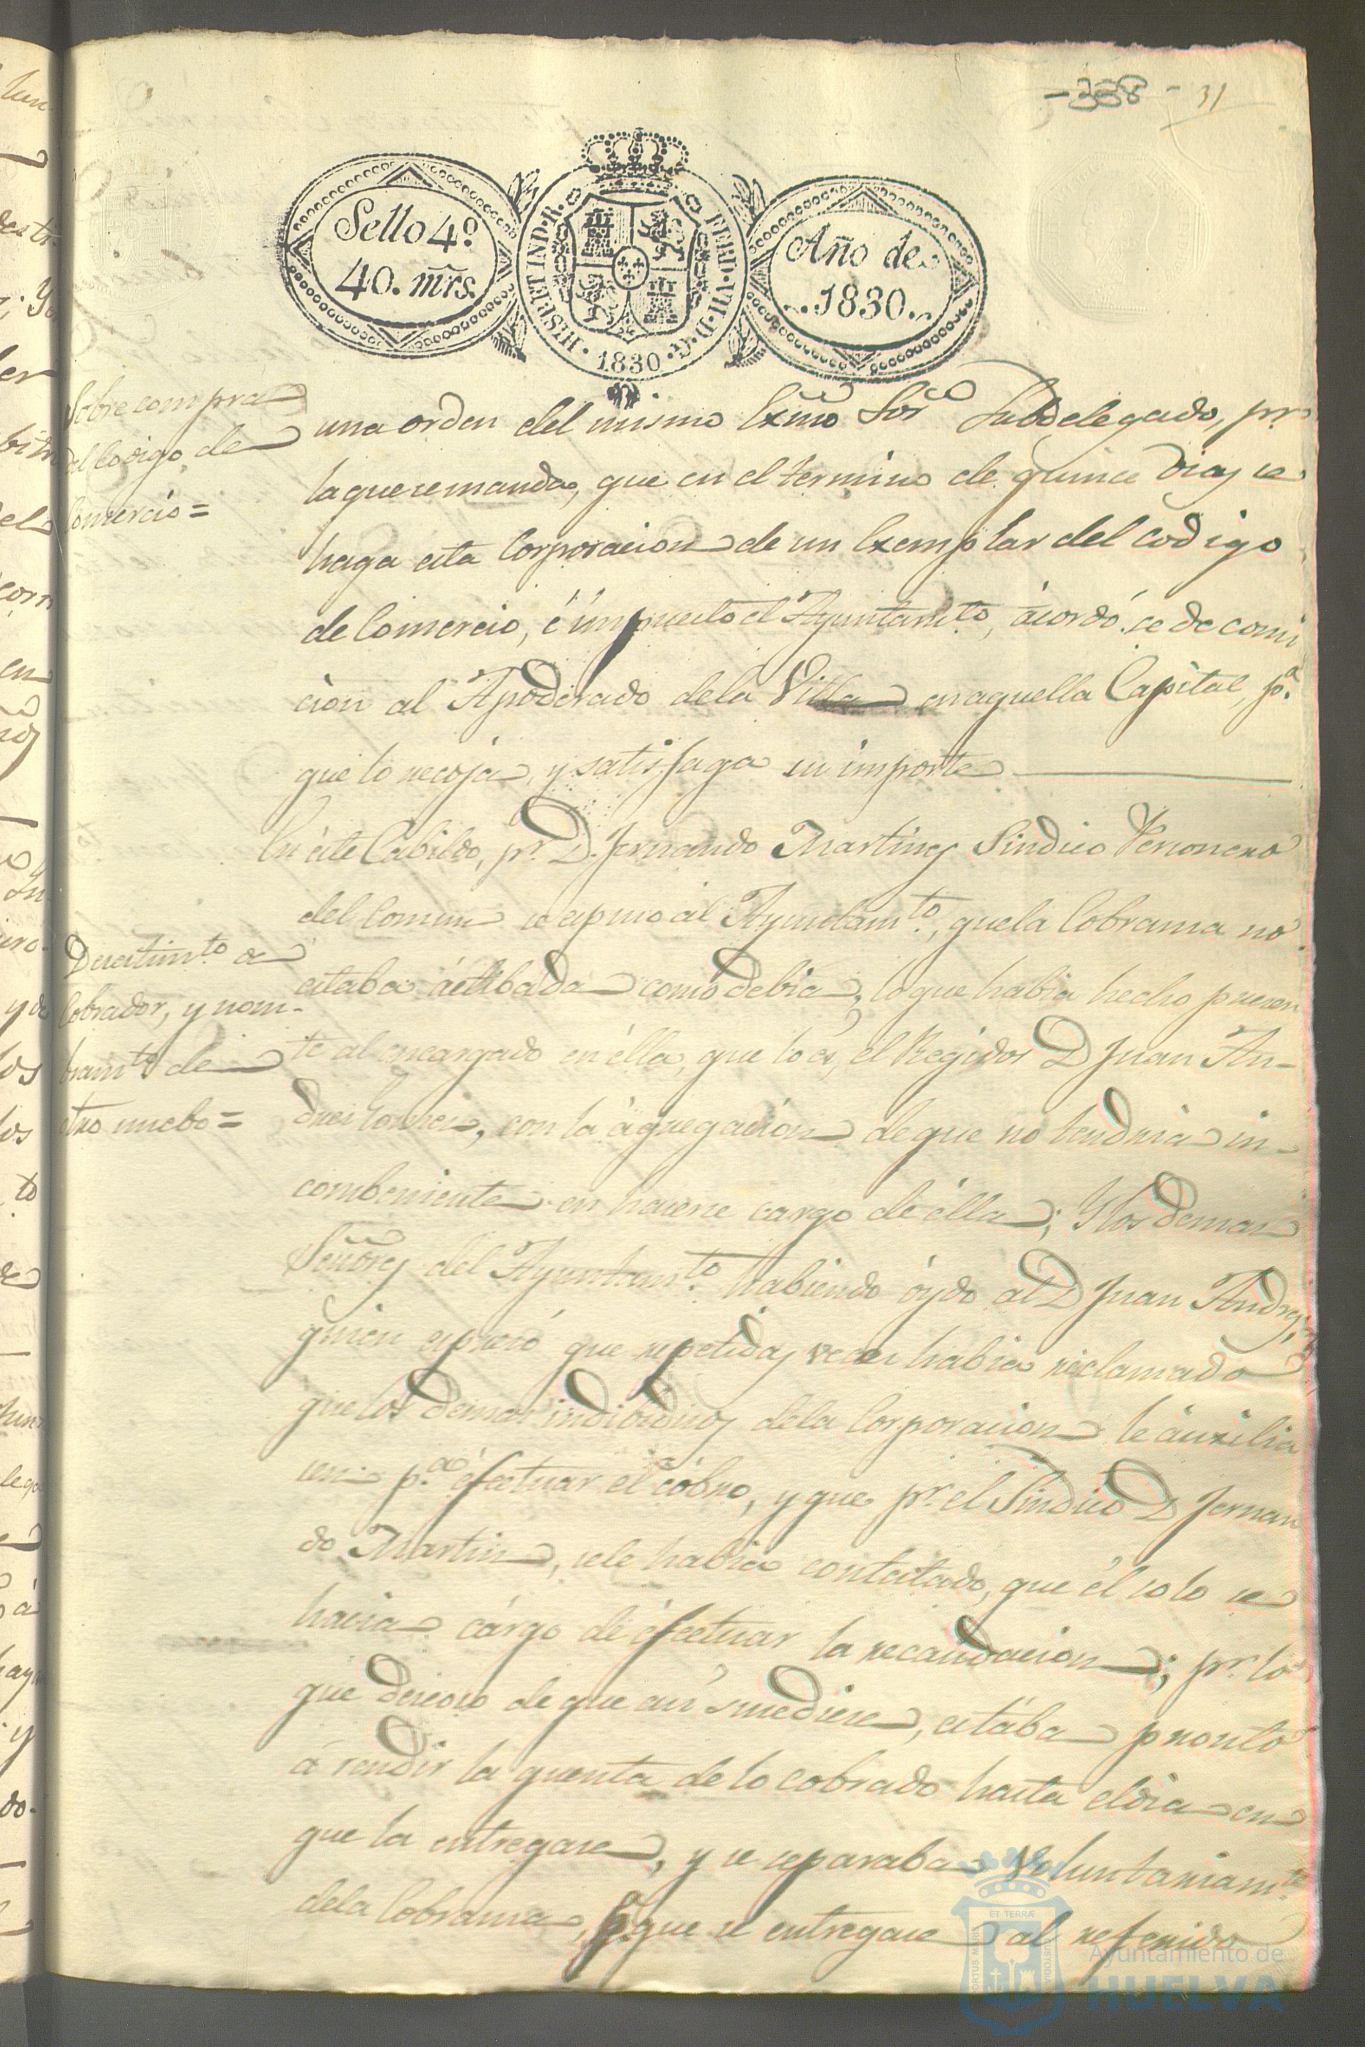 -338- 31
Sello 4º
40. mrs.
HISP. ET IND. R. FERD. VII. D. G. 1830
Año de
1830
Sobre compra
del Codigo de
Comercio =
una orden del mismo Exmo Sor Subdelegado, pr.
la que se manda, que en el termino de quince dias se
haga esta Corporacion de un Exemplar del codigo
de Comercio, é impuesto el Ayuntamto, acordó se de comi
cion al Apoderado de la Villa en aquella Capital, pa.
que lo recoja, y satisfaga su importe
En este Cabildo, pr. D. Fernando Martines Sindico Personero
del Comun se espuso al Ayuntamto., que la Cobransa no
Desestimto. de
Cobrador, y nom-
bramto. de
otro nuebo =
estaba actibada como debia, lo que habia hecho presen
te al encargado en élla, que lo es, el Regidor D Juan An-
dres, con la agregacion de que no tendria in-
combeniente en hacerse cargo de élla; Y los demas
Señores del Ayuntamto. habiendo óydo al D Juan Andres,
quien espresó que repetidas veces habia reclamado
que los demas indibiduos de la Corporacion le auxilia
sen pa. éfectuar el cobro, y que pr. el Sindico D Fernan
do Martin, se le habia contestado, que él solo se
hacia cargo de éfectuar la recaudacion; pr. lo
que deseoso de que asi susediese, estaba pronto
a rendir la quenta de lo cobrado hasta el dia en
que la entregase, y se separaba Voluntariamte.
de la Cobransa, pa. que se entregase al referido
ET TERRÆ
Ayuntamiento de
HUELVA